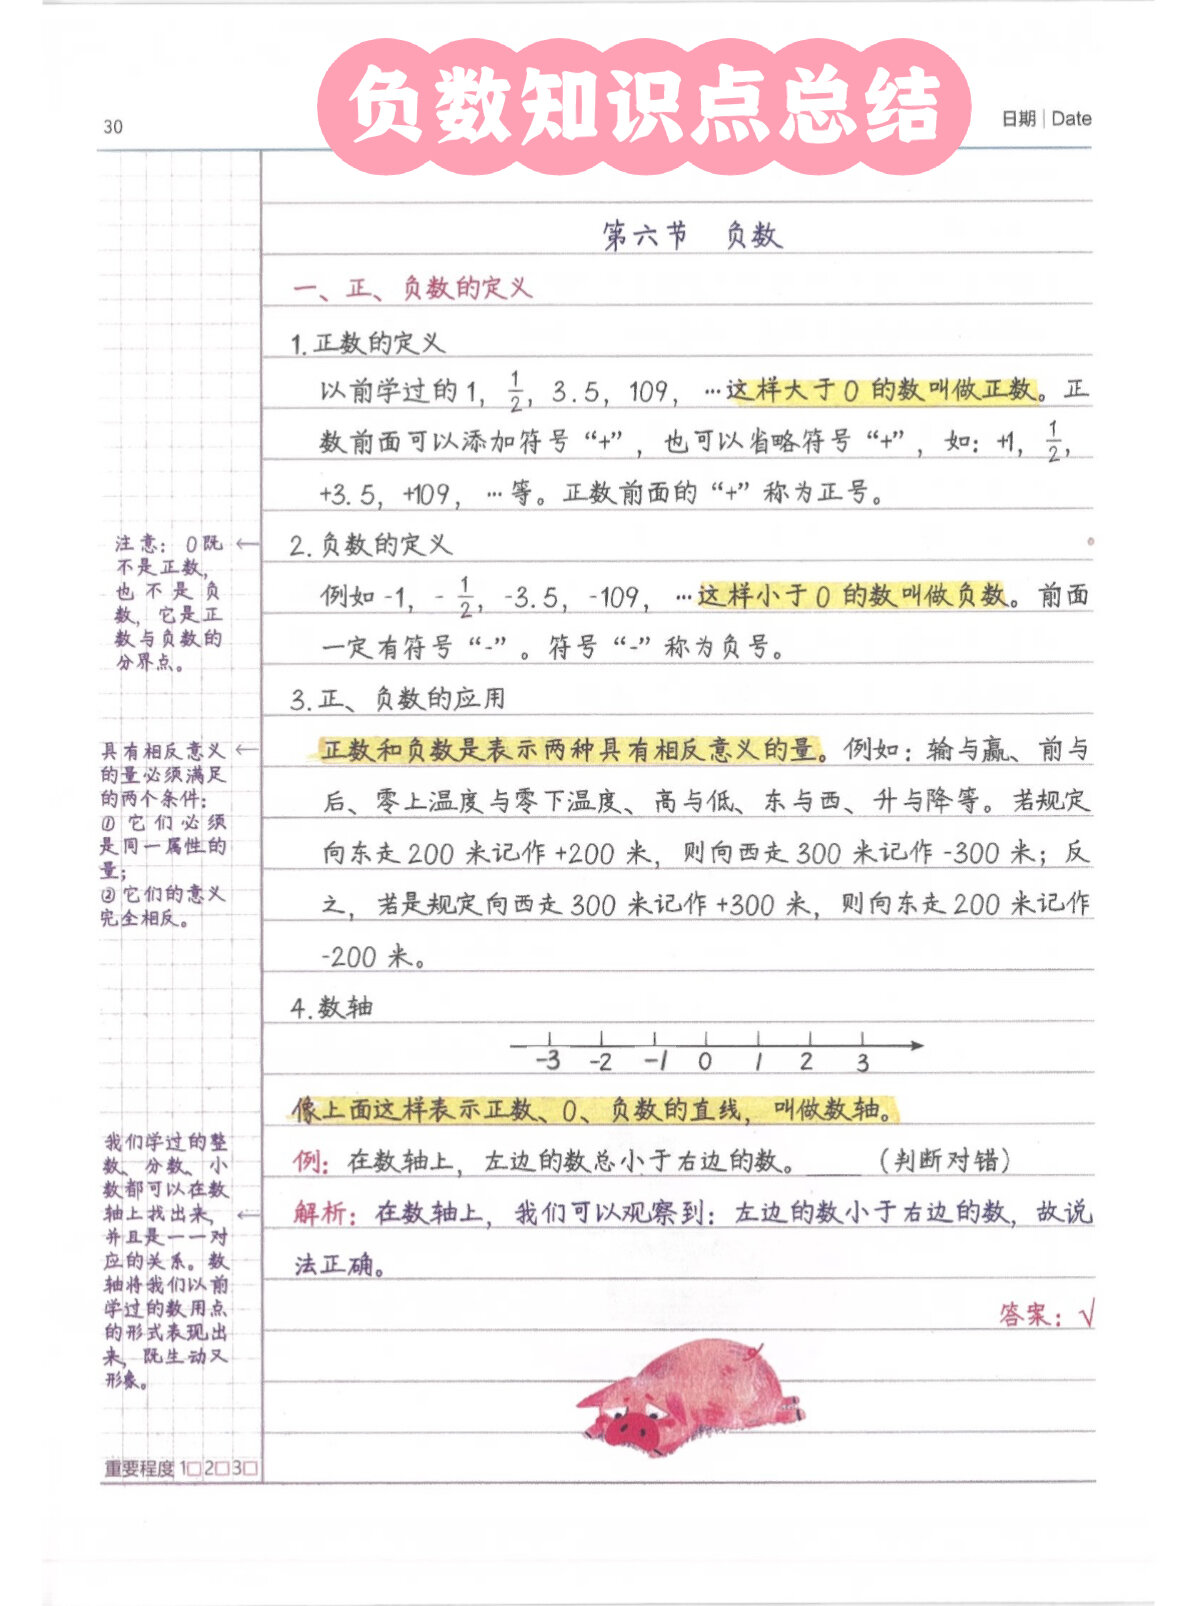 负数知识点总结
30
日期 | Date
第六节 负数
一、正、负数的定义
1.正数的定义
以前学过的1，1/2，3.5，109，…这样大于0的数叫做正数。正
数前面可以添加符号“+”，也可以省略符号“+”，如：+1，1/2，
+3.5，+109，…等。正数前面的“+”称为正号。
2.负数的定义
例如-1，-1/2，-3.5，-109，…这样小于0的数叫做负数。前面
一定有符号“-”。符号“-”称为负号。
3.正、负数的应用
正数和负数是表示两种具有相反意义的量。例如：输与赢、前与
后、零上温度与零下温度、高与低、东与西、升与降等。若规定
向东走200米记作+200米，则向西走300米记作-300米；反
之，若是规定向西走300米记作+300米，则向东走200米记作
-200米。
4.数轴
-3 -2 -1 0 1 2 3
像上面这样表示正数、0、负数的直线，叫做数轴。
例：在数轴上，左边的数总小于右边的数。____（判断对错）
解析：在数轴上，我们可以观察到：左边的数小于右边的数，故说
法正确。
答案：√
注意：0既
不是正数，
也不是负
数，它是正
数与负数的
分界点。
具有相反意义
的量必须满足
的两个条件：
①它们必须
是同一属性的
量；
②它们的意义
完全相反。
我们学过的整
数、分数、小
数都可以在数
轴上找出来，
并且是一一对
应的关系。数
轴将我们以前
学过的数用点
的形式表现出
来，既生动又
形象。
重要程度 1□2□3□